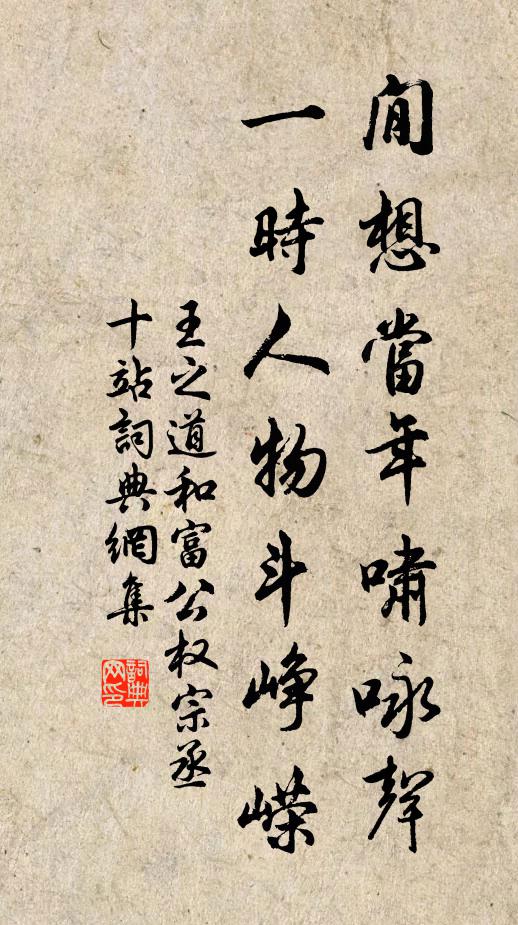 閒想當年嘯咏聲
一時人物斗峥嶸
王之道和富公权宗丞
十站詞典網集
詞典
网印